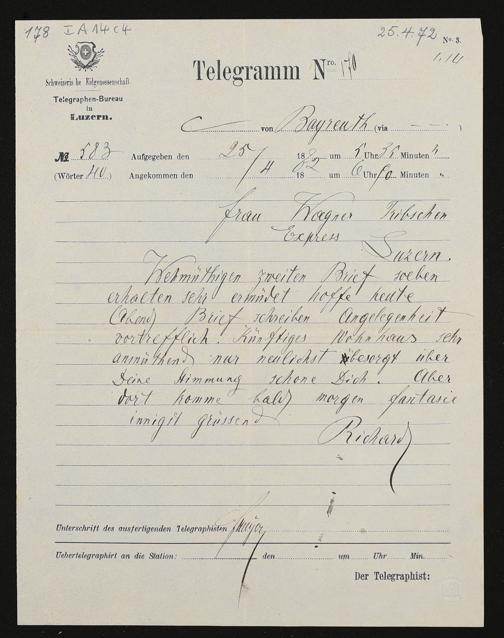 178 I A 14 c 4
25.4.72
No. 3.
Schweizerische Eidgenossenschaft.
Telegraphen-Bureau
in
Luzern.
Telegramm Nro. 170
von Bayreuth (via
№ 583 Aufgegeben den 25/4 18 um 5 Uhr 35 Minuten
(Wörter 40) Angekommen den 18 um 6 Uhr Minuten
Frau Wagner Tribschen
Express Luzern.
Wehmüthigen zweiten Brief soeben
erhalten sehr ermüdet hoffe heute
Abend Brief schreiben Angelegenheit
vortrefflich. Künftiges Wohnhaus sehr
anmuthend nur neulichst besorgt über
Deine Stimmung schone Dich. Aber
dort komme bald morgen fantasie
innigst grüssend
Richard
Unterschrift des ausfertigenden Telegraphisten
Uebertelegraphirt an die Station: den um Uhr Min.
Der Telegraphist: